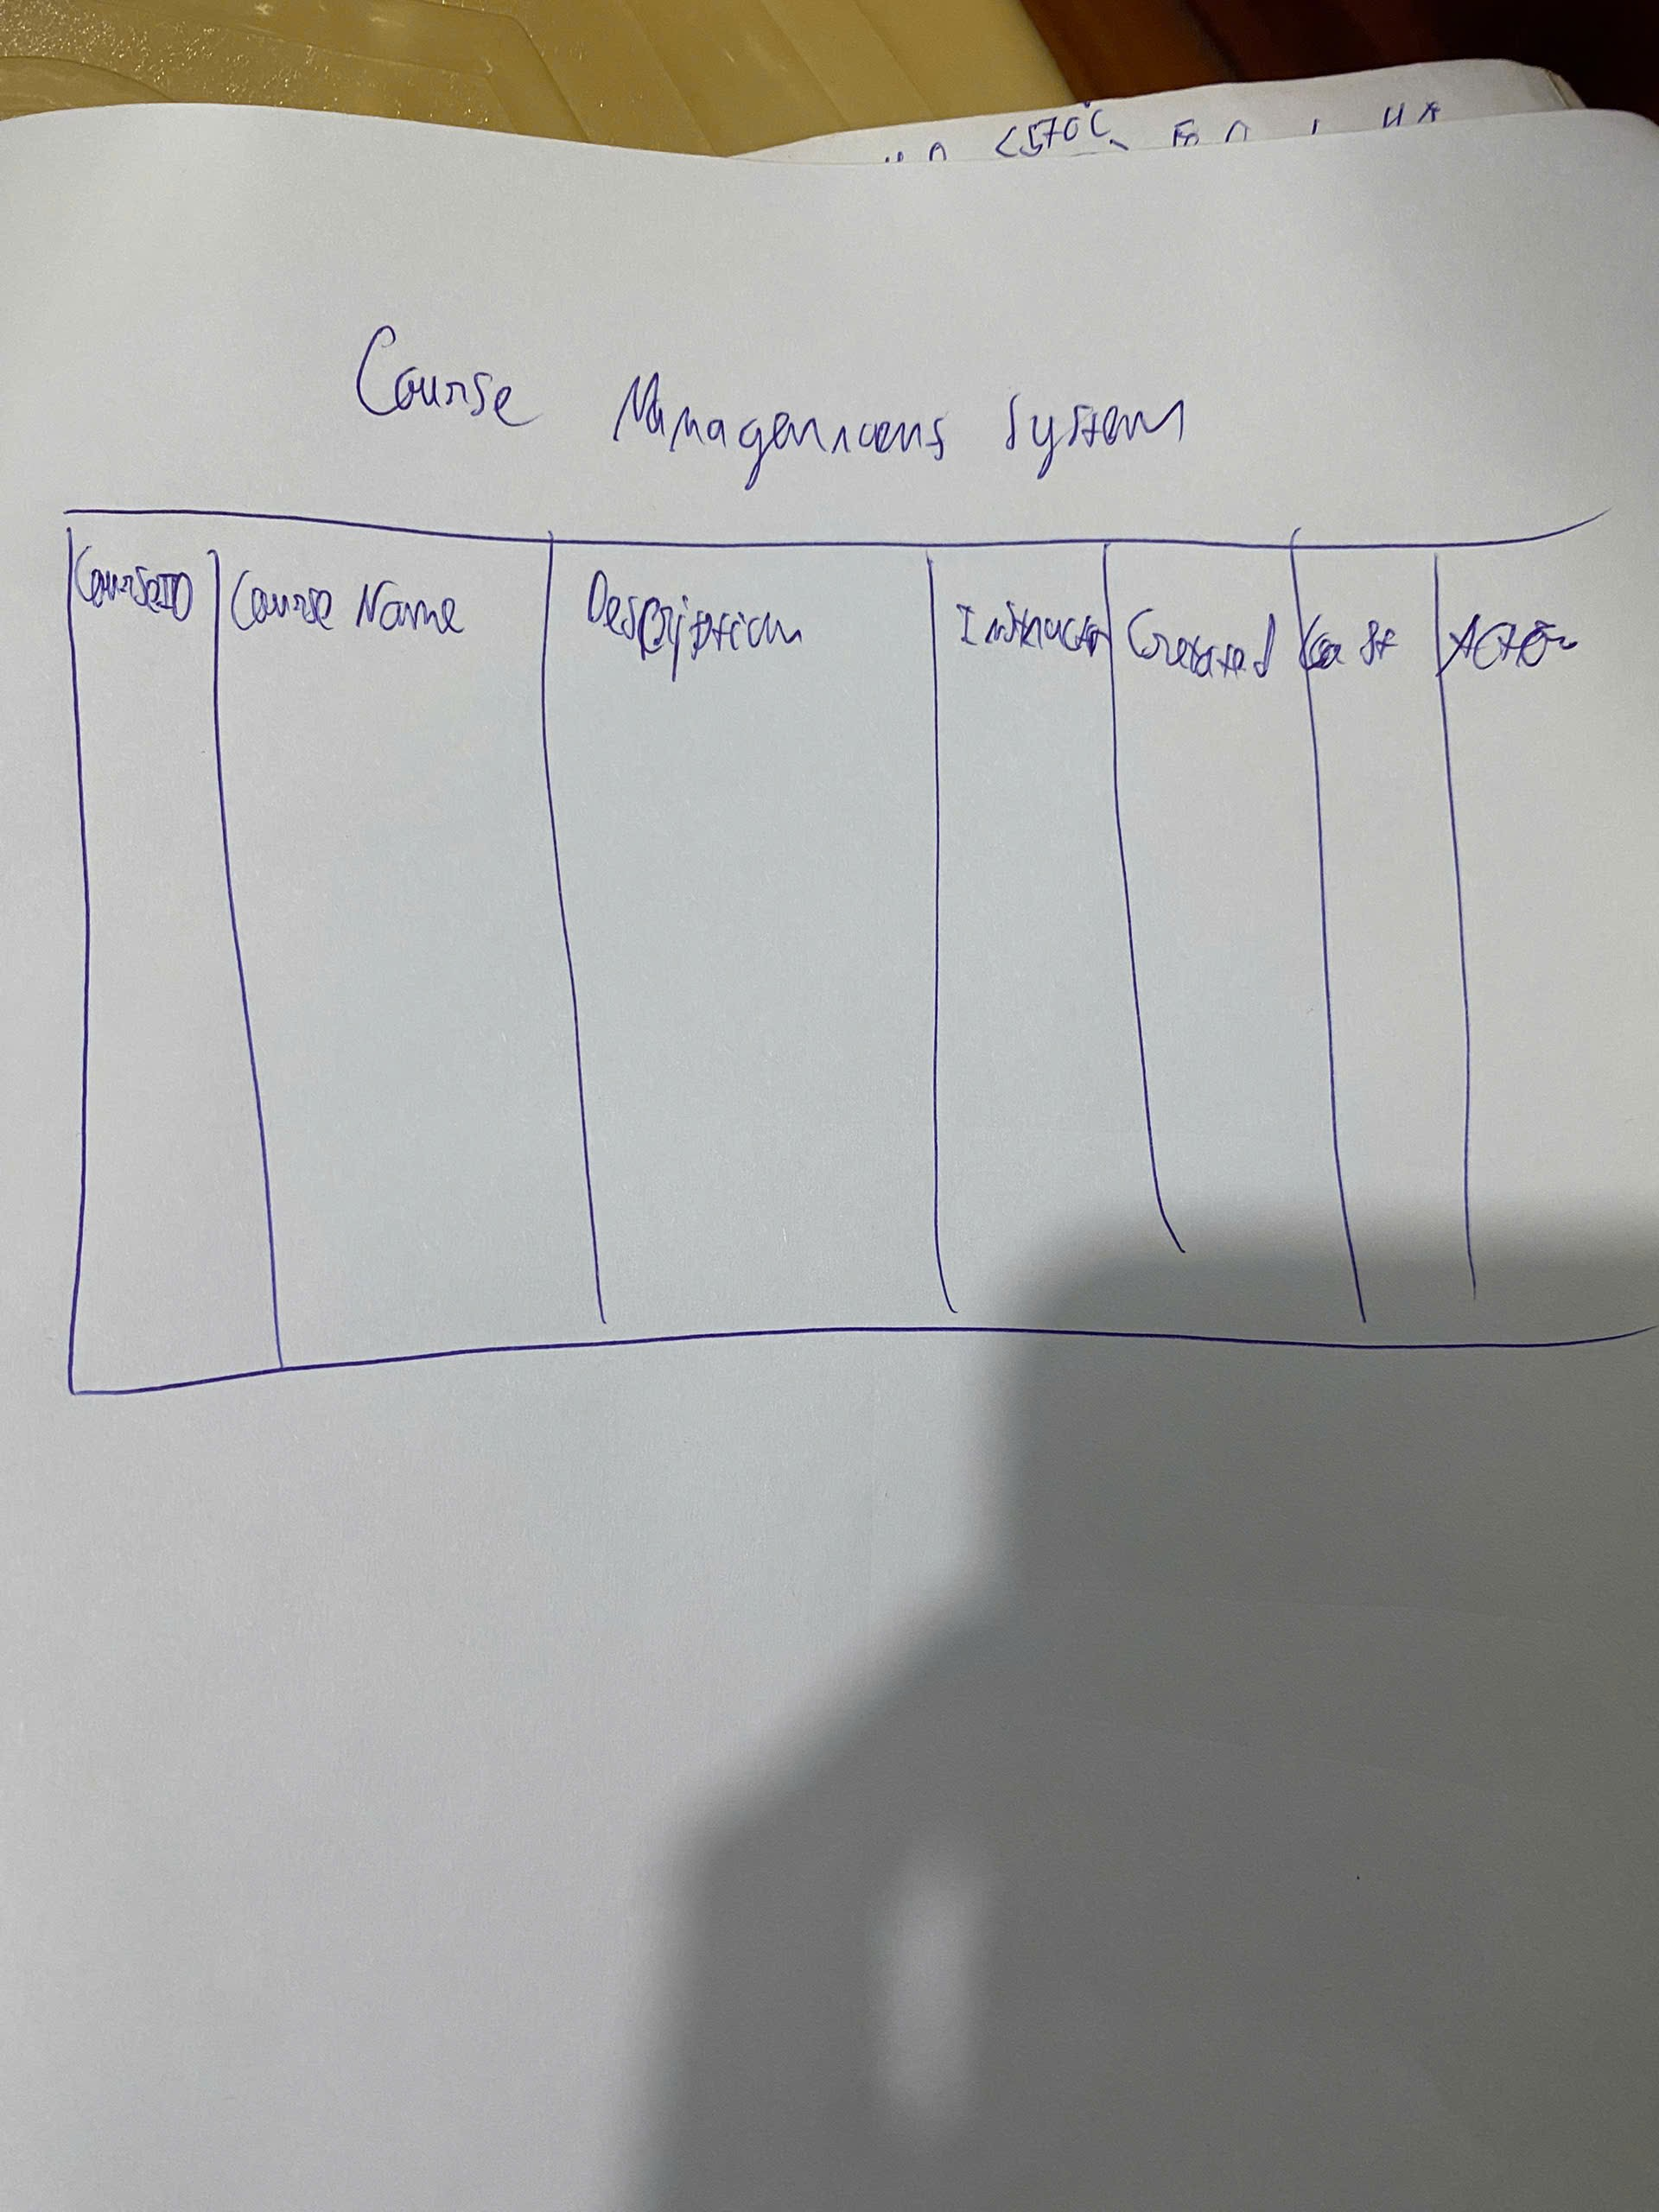 Course Management System
CourseID Course Name Description Instructor Created Cost Action